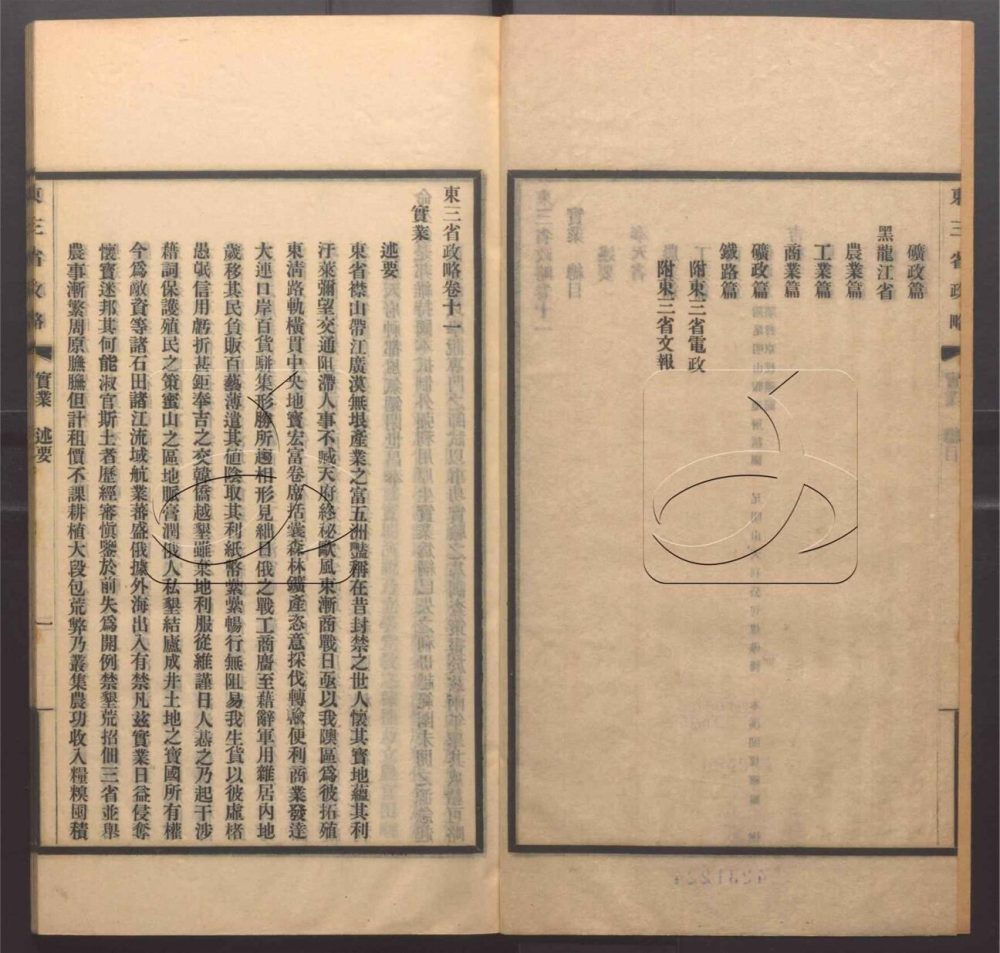 東三省政略
礦政篇
黑龍江省
農業篇
工業篇
商業篇
礦政篇
鐵路篇
附東三省電政
附東三省文報
東三省政略卷十一
實業
述要
東省襟山帶江廣漠無垠產業之富五洲豔稱在昔封禁之世人懷其寶地蘊其利
汙萊彌望交通阻滯人事不臧天府終秘歐風東漸商戰日亟以我隩區爲彼拓殖
東清路軌橫貫中央地寶宏富卷席括囊森林鑛產恣意採伐轉輸便利商業發達
大連口岸百貨駢集形勝所趨相形見絀日俄之戰工商麕至藉辭軍用雜居內地
歲移其民負販百藝薄遣其値陰取其利紙幣纍纍暢行無阻易我生貨以彼虛楮
愚氓信用虧折甚鉅奉吉之交韓僑越墾雖棄地利服從維謹日人惎之乃起干涉
藉詞保護殖民之策蜜山之區地脈膏潤俄人私墾結廬成井土地之寶國所有權
今爲敵資等諸石田諸江流域航業蕃盛俄據外海出入有禁凡茲實業日益侵奪
懷寶迷邦其何能淑官斯土者歷經審愼鑒於前失爲開例禁墾荒招佃三省並舉
農事漸繁周原膴膴但計租價不課耕植大段包荒弊乃叢集農功收入糧糗囤積
東三省政略
實業　述要
一